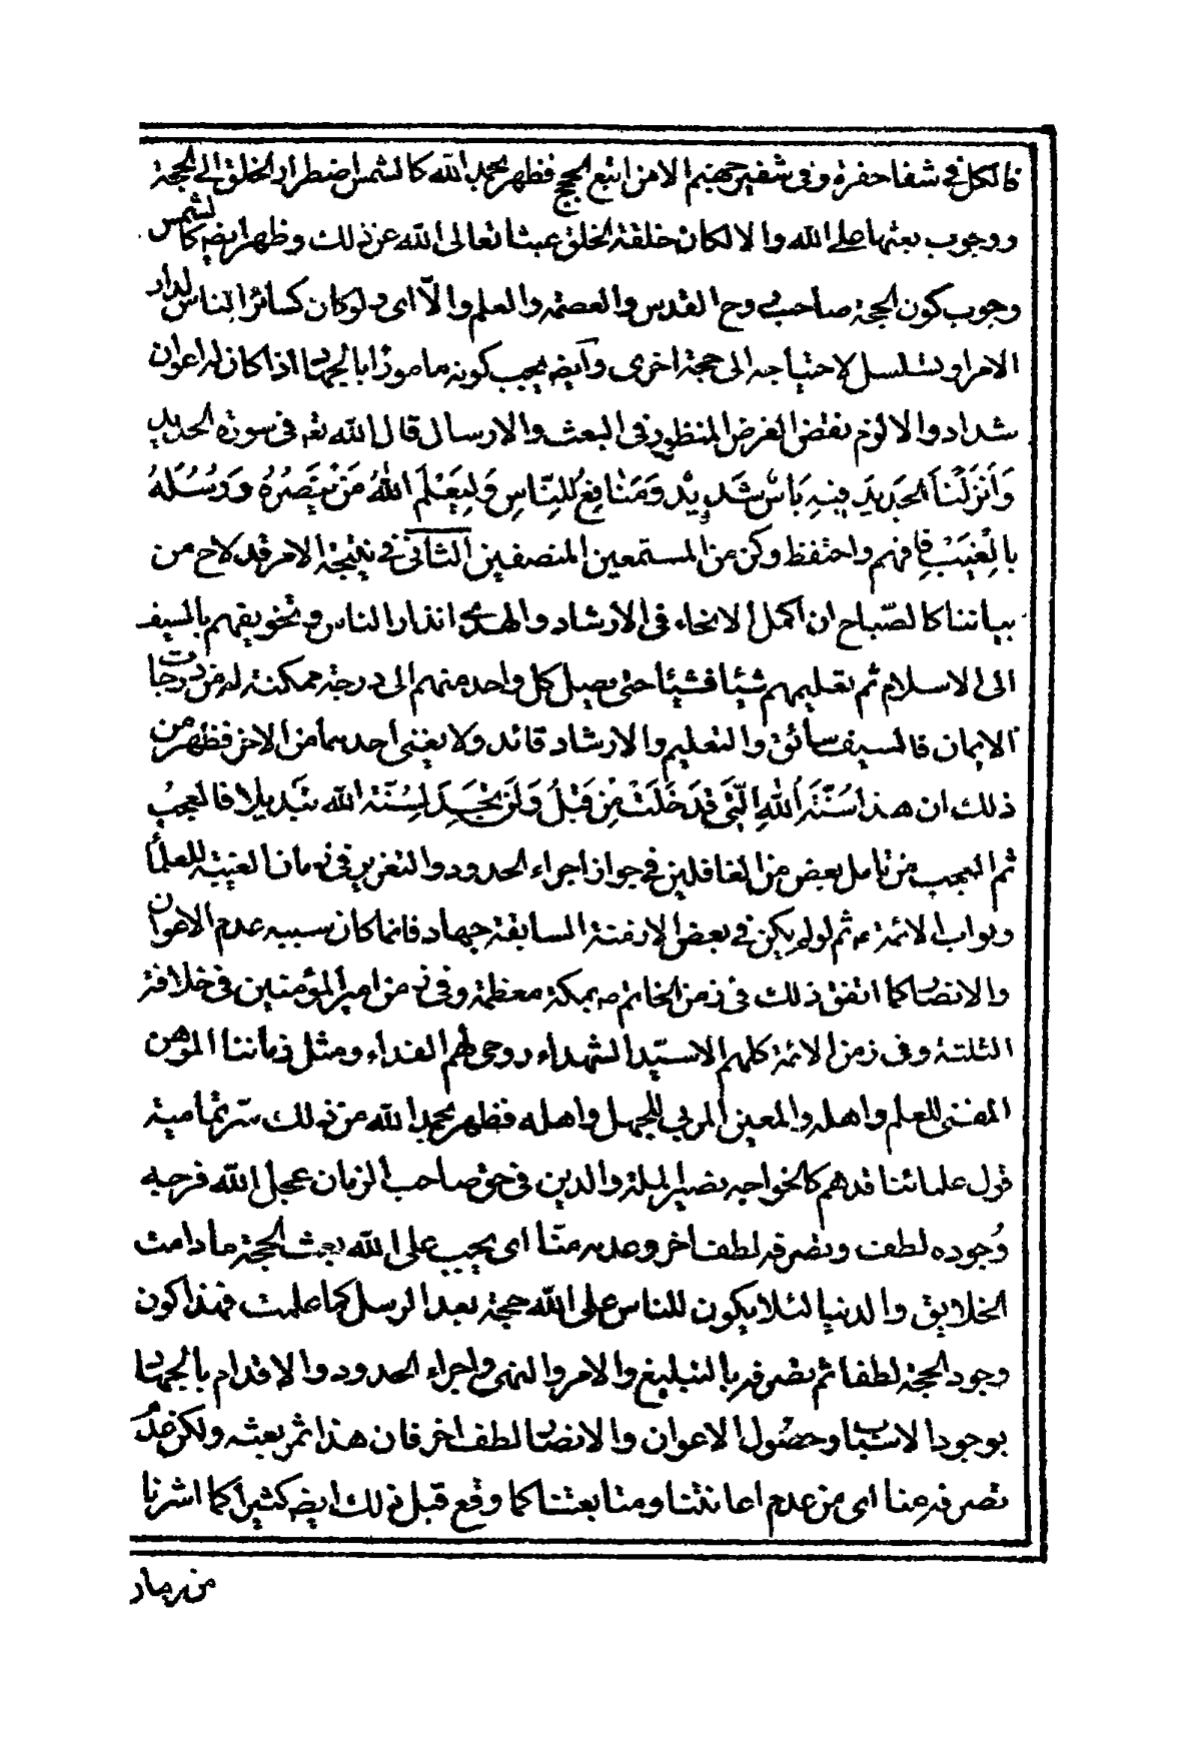 فالكل في شفا حفرة وفي شفير جهنم الا من اتبع الحجج فظهر بحمد الله كالشمس اضطرار الخلق الى الحجة
ووجوب بعثها على الله والا لكان خلقة الخلق عبثا تعالى الله عن ذلك وظهر ايضه كالشمس
وجوب كون الحجة صاحب روح القدس والعصمة والعلم والّا اى ولو كان كسائر الناس لدار
الامر او تسلسل لاحتياجه الى حجة اخرى وايضه يجب كونه مامورا بالجهاد اذا كان له اعوان
شداد والا لزم نقض الغرض المنظور في البعث والارسال قال الله تعه فى سورة الحديد
وَاَنْزَلْنَا الحَدِيدَ فِيهِ بَاسٌ شَدِيْد وَمَنافِعُ للِنّاسِ وَلِيَعْلَمَ اللهُ مَنْ يَنْصُرُهُ وَرُسُلَهُ
بالْغَيْبِ فافهم واحتفظ وكن من المستمعين المنصفين الثانى في نتيجة الامر قد لاح من
بياننا كالصّباح ان اكمل الانحاء فى الارشاد والهدى انذار الناس وتخويفهم بالسيف
الى الاسلام ثم تعليمهم شيئا فشيئا حتى يصل كل واحد منهم الى درجة ممكنة له من درجات
الايمان فالسيف سائق والتعليم والارشاد قائد ولا يغنى احدهما من الاخر فظهر من
ذلك ان هذا سُنَّةَ اللهِ الَّتي قَدْ خَلَتْ مِنْ قَبْلُ وَلَنْ تَجِدَ لِسُنَّةِ الله تَبْديلا فالعجب
ثم العجب من تامل بعض من الغافلين في جواز اجراء الحدود والتعزير في زمان الغيبة للعلماء
ونواب الائمة ع ثم لو لم يكن في بعض الازمنة السابقة جهاد فانما كان سببه عدم الاعوان
والانصار كما اتفق ذلك فى زمن الخاتم ص بمكة معظمة وفى زمن امير المؤمنين فى خلافة
الثلثة وفى زمن الائمة كلهم الا سيّد الشهداء روحى لهم الفداء ومثل زماننا الموهن
المفنى للعلم واهله والمعين المربي للجهل واهله فظهر بحمد الله من ذلك سرّ تمامية
قول علمائنا قدهم كالخواجه نصير الملة والدين في حق صاحب الزمان عجل الله فرجه
وُجوده لطف وتصرفه لطف اخر وعدمه منّا اى يجب على الله بعث الحجة ما دامت
الخلايق والدنيا لئلا يكون للناس على الله حجة بعد الرسل كما علمت فهذا كون
وجود الحجة لطفا ثم تصرفه بالتبليغ والامر والنهى واجراء الحدود والاقدام بالجهاد
بوجود الاسباب وحصول الاعوان والانصار لطف اخر فان هذا ثمر بعثه ولكن عدم
تصرفه عنا اى من عدم اعانتنا ومتابعتنا كما وقع قبل ذلك ايضه كثيرا كما اشرنا